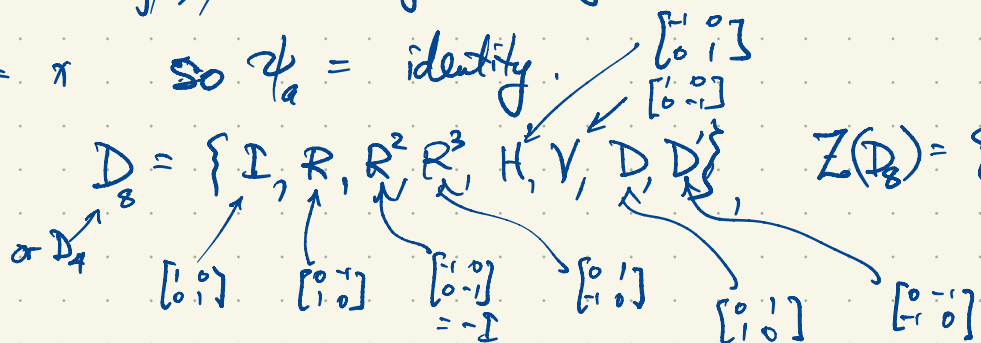 = x so ψₐ = identity.
[-1 0
0 1]
[1 0
0 -1]
D₈ = { I, R, R², R³, H, V, D, D'} Z(D₈) = {
or D₄
[1 0
0 1]
[0 -1
1 0]
[-1 0
0 -1]
= -I
[0 1
-1 0]
[0 1
1 0]
[0 -1
-1 0]